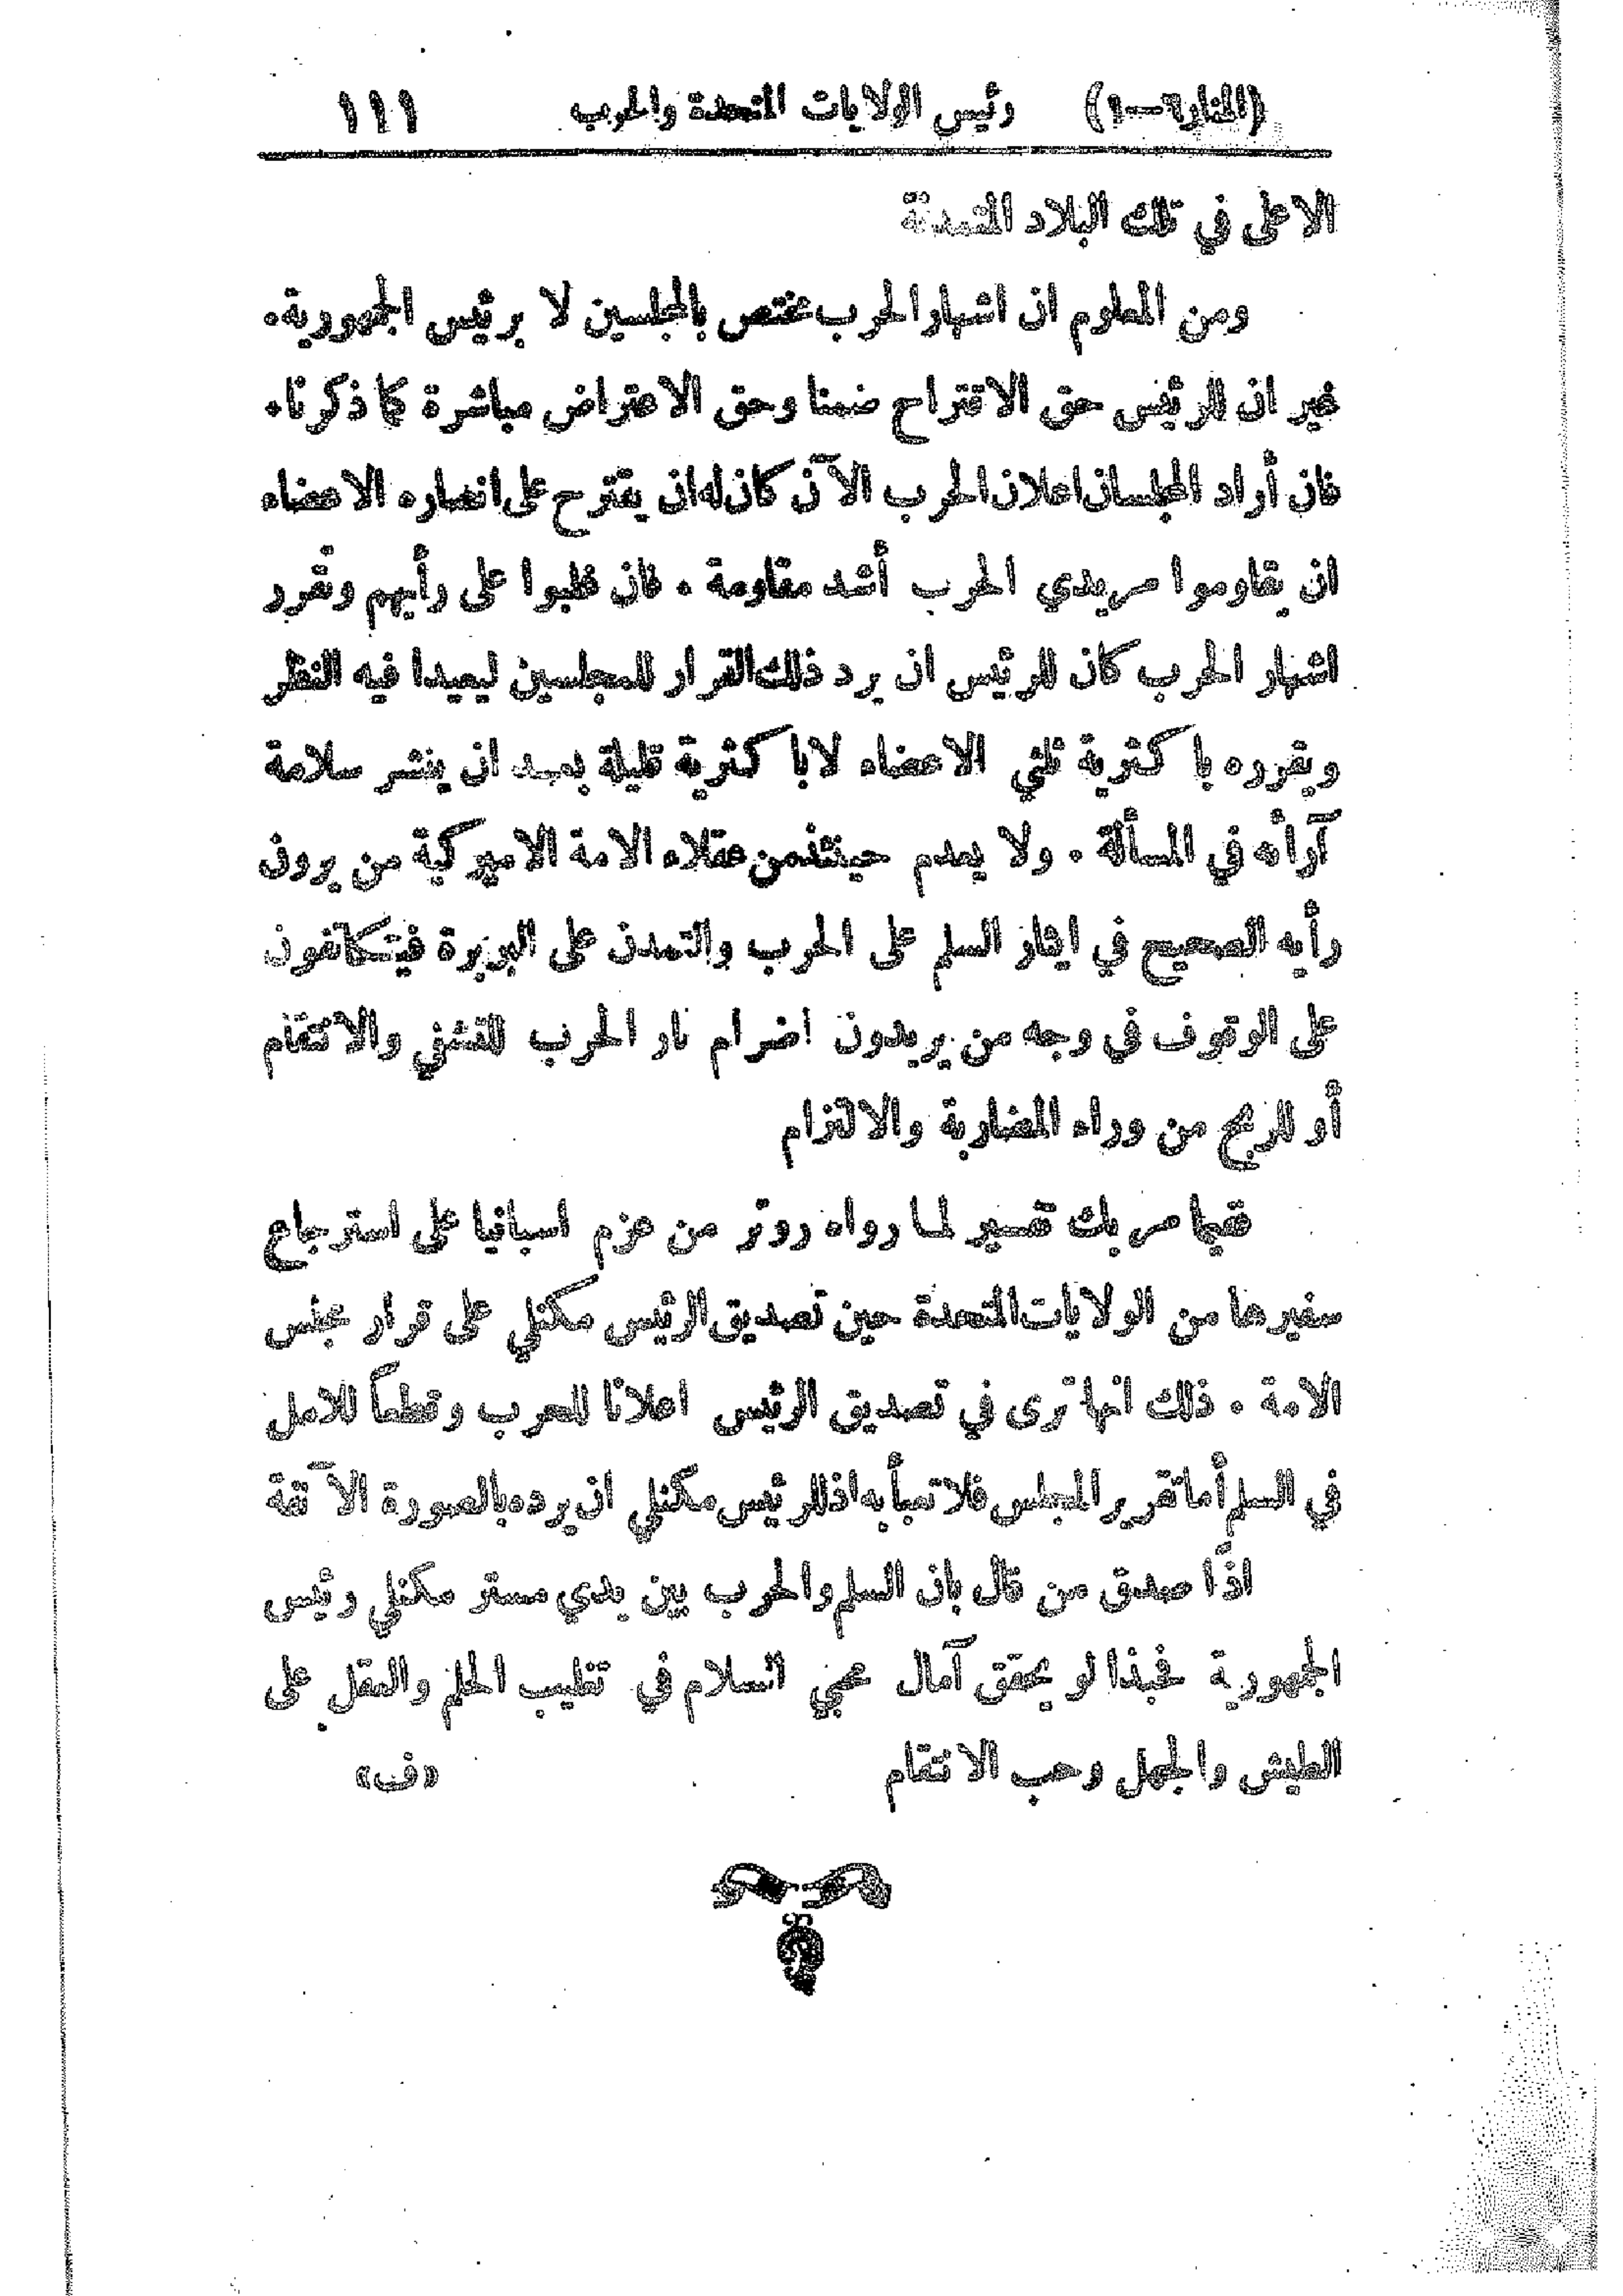 (المنار ٦—١) رئيس الولايات المتحدة والحرب ١١١
الاعلى في تلك البلاد المتمدنة
ومن المعلوم ان اشهار الحرب مختص بالمجلسين لا برئيس الجمهورية.
غير ان للرئيس حق الاقتراح ضمنا وحق الاعتراض مباشرة كما ذكرنا.
فان أراد المجلسان اعلان الحرب الآن كان له ان يقترح على انصاره الاعضاء
ان يقاوموا مريدي الحرب أشد مقاومة . فان غلبوا على رأيهم وتقرر
اشهار الحرب كان للرئيس ان يرد ذلك القرار للمجلسين ليعيدا فيه النظر
ويقرره باكثرية ثلثي الاعضاء لا باكثرية قليلة بعد ان ينشر سلامة
آرأه في المسألة . ولا يعدم حينئذ من عقلاء الامة الاميركية من يرون
رأيه الصحيح في ايثار السلم على الحرب والتمدن على البربرة فيتكاتفون
على الوقوف في وجه من يريدون اضرام نار الحرب للتشفي والانتقام
أو للربح من وراء المضاربة والالتزام
ففيما مر بك تفسير لما رواه روتر من عزم اسبانيا على استرجاع
سفيرها من الولايات المتحدة حين تصديق الرئيس مكنلي على قرار مجلس
الامة . ذلك انها ترى في تصديق الرئيس اعلانا للحرب وقطعاً للامل
في السلم أما تقرير المجلس فلا تعبأ به اذ للرئيس مكنلي ان يرده بالصورة الآنفة
اذًا صدق من قال بان السلم والحرب بين يدي مستر مكنلي رئيس
الجمهورية فحبذا لو يحقق آمال محبي السلام في تغليب الحلم والعقل على
الطيش والجهل وحب الانتقام «ف»